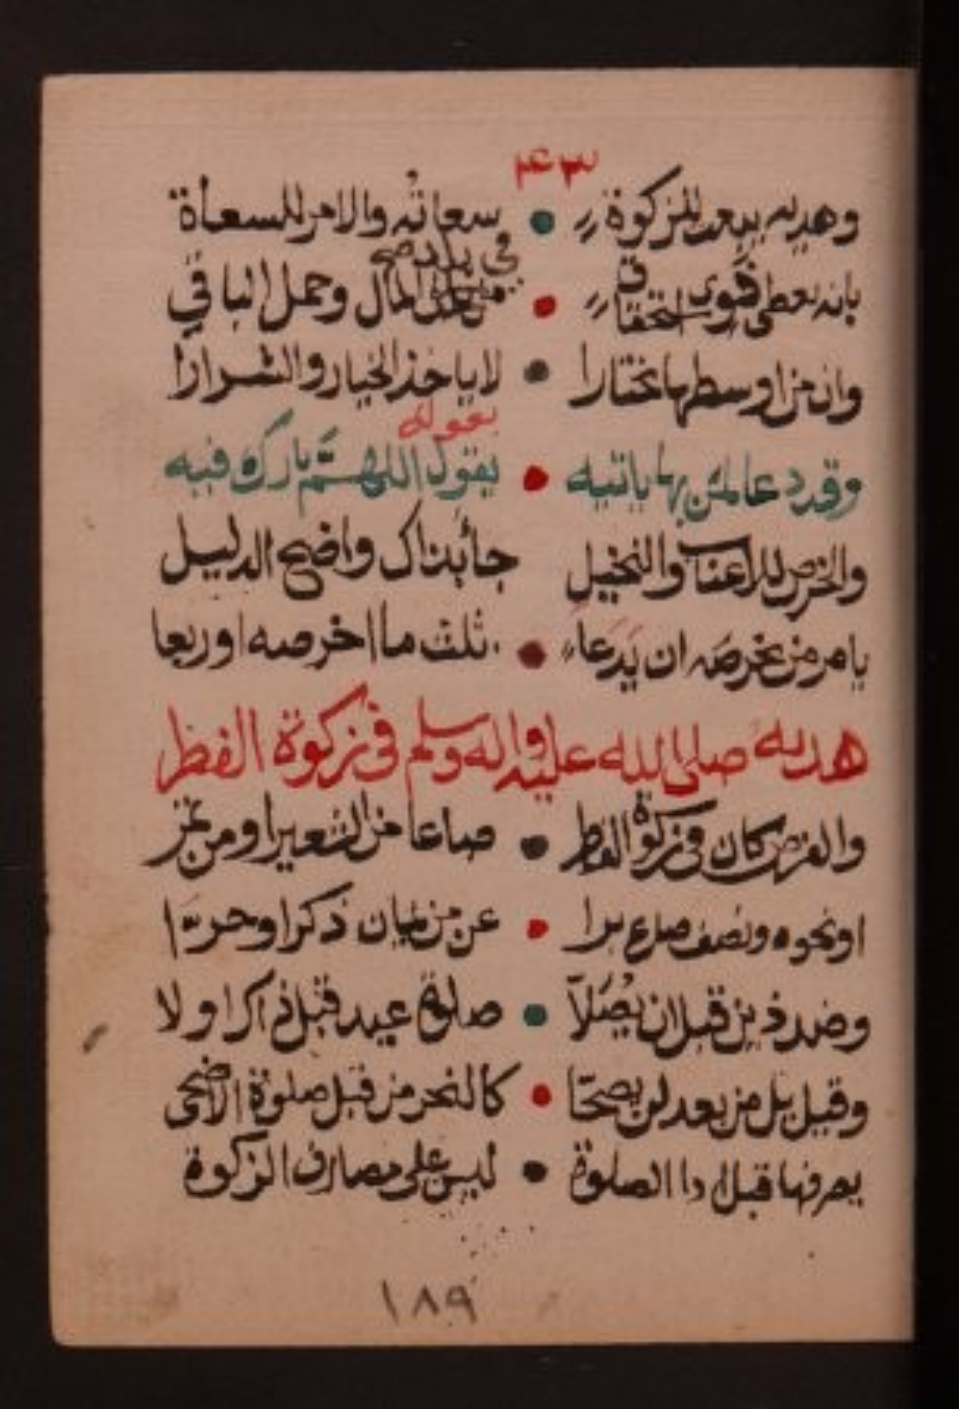 ٤٣
وهديه يبعث للزكوة سعاته والامر للسعاة
بانه يعطى قوى استحقاق من المال وحمل الباقي
في يد
وان من اوسطها مختارا لا ياخذ الخيار والشرارا
بقوله
وقد دعا لمن بها ياتيه يقول اللهم بارك فيه
والخرص للاعناب والنخيل جا بذاك واضح الدليل
يامر من يخرصه ان يدعا ثلث ما اخرصه او ربعا
هديه صلى الله عليه واله وسلم في زكوة الفطر
والفرض كان في زكوة الفطر صاعا من الشعير او من تمر
او نحوه ونصف صاع برا عن من ذكرا وحرا
وضد ذين قبل ان يصلا صلوة عيد قبل ذاكرا ولا
وقيل بل من بعد لن يصحا كالنحر من قبل صلوة الاضحى
يصرفها قبل ادا الصلوة ليس على مصارف الزكوة
١٨٩